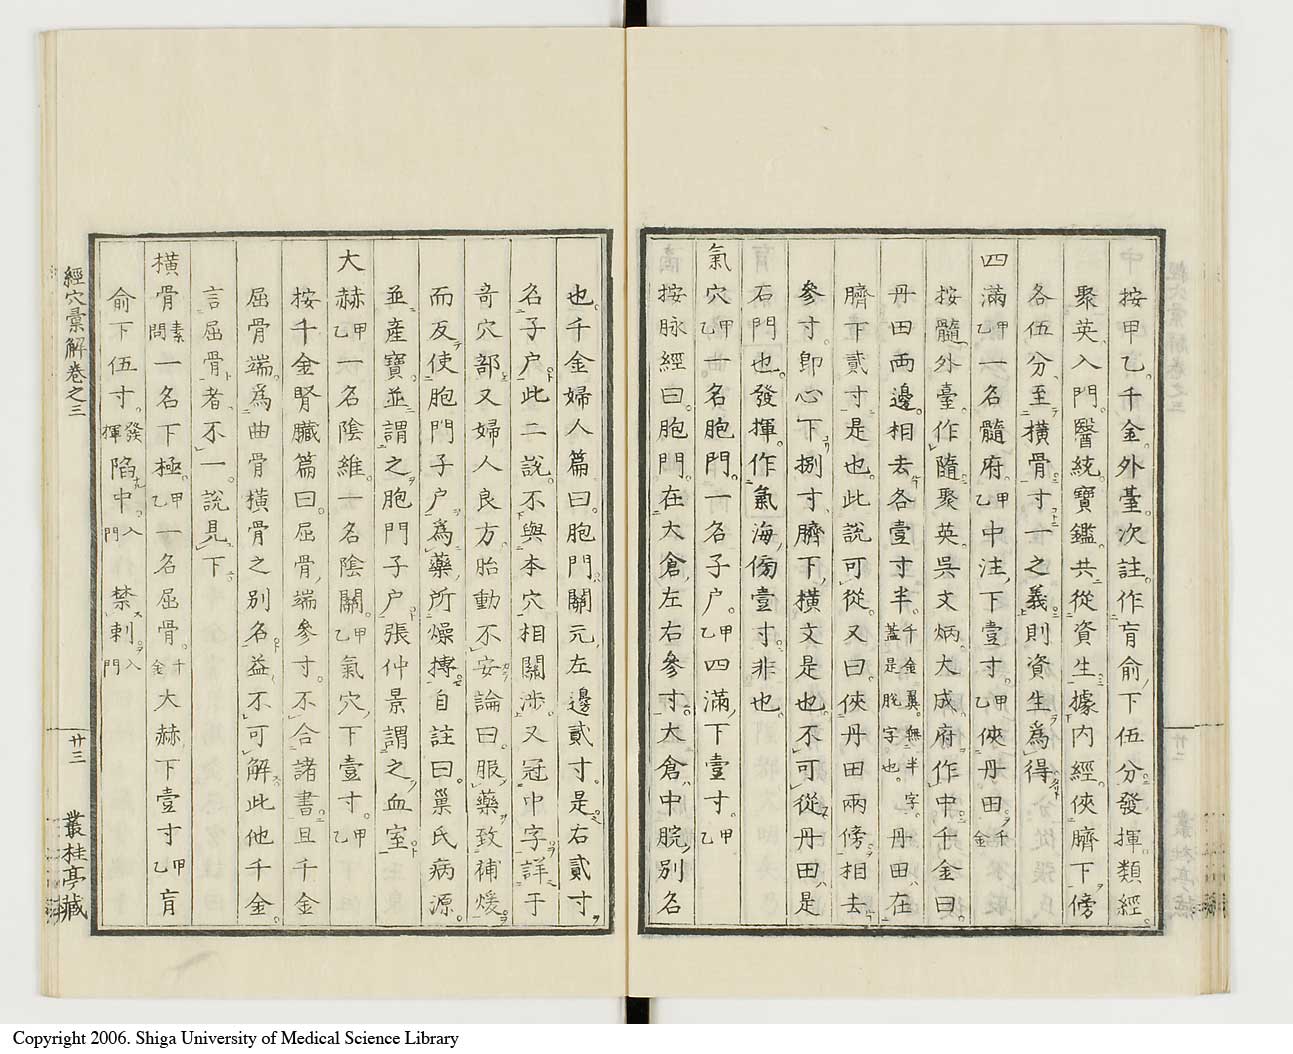 按甲乙千金外臺次註作肓俞下伍分發揮類經
聚英入門醫統寶鑑共從資生據內經俠臍下傍
各伍分至橫骨寸一之義則資生爲得
四滿甲乙一名髓府甲乙中注下壹寸甲乙俠丹田千金
按髓外臺作隨聚英吳文炳大成府作中千金曰
丹田兩邊相去各壹寸半千金翼無半字蓋是脫字也丹田在
臍下貳寸是也此說可從又曰俠丹田兩傍相去
參寸卽心下捌寸臍下橫文是也不可從丹田是
石門也發揮作氣海傍壹寸非也
氣穴甲乙一名胞門一名子户甲乙四滿下壹寸甲乙
按脉經曰胞門在大倉左右參寸大倉中脘別名
也千金婦人篇曰胞門關元左邊貳寸是右貳寸
名子户此二說不與本穴相關涉又冠中字詳于
奇穴部又婦人良方胎動不安論曰服藥致補煖
而反使胞門子户爲藥所燥摶自註曰巢氏病源
並產寶並謂之胞門子户張仲景謂之血室
大赫甲乙一名陰維一名陰關甲乙氣穴下壹寸甲乙
按千金腎臟篇曰屈骨端參寸不合諸書且千金
屈骨端爲曲骨橫骨之別名益不可解此他千金
言屈骨者不一說見下
橫骨素問一名下極甲乙一名屈骨千金大赫下壹寸甲乙肓
俞下伍寸發揮陷中入門禁刺入門
經穴彙解卷之三
廿三
叢桂亭藏
Copyright 2006. Shiga University of Medical Science Library